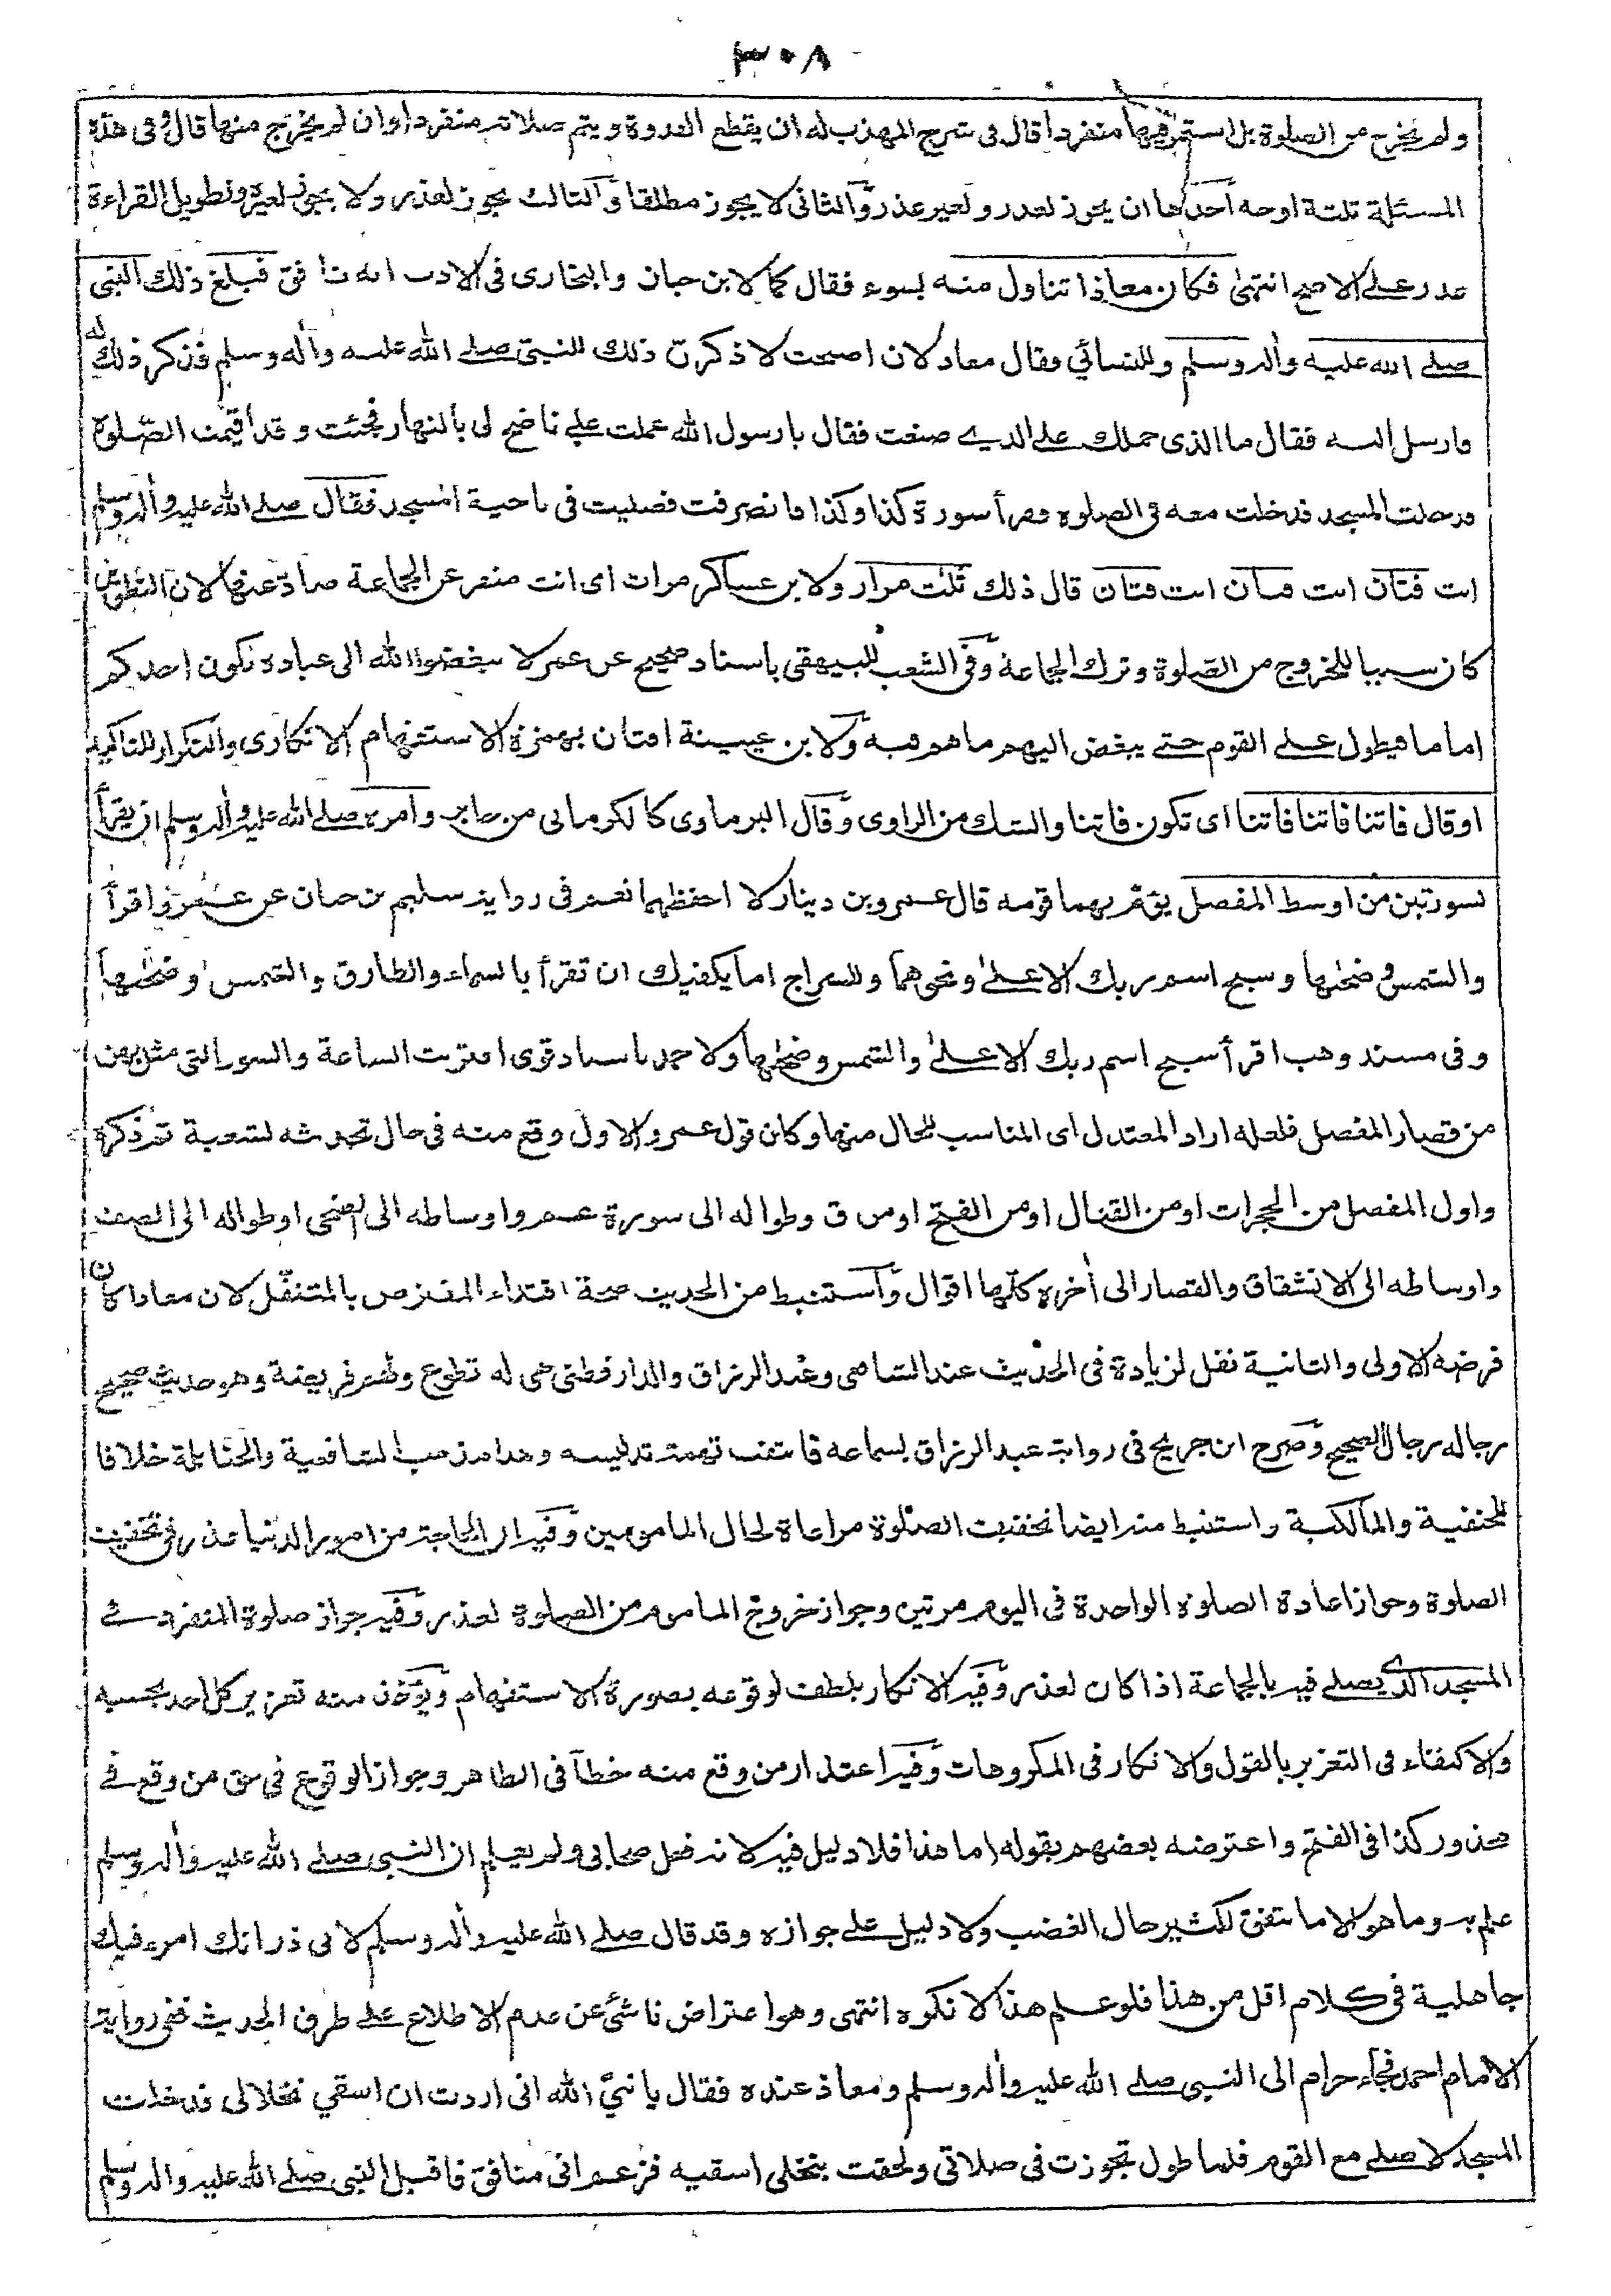 ٣٠٨
ولم يخرج من الصلوة بل استمر فيها منفردا قال فى شرح المهذب له ان يقطع القدوة ويتم صلاته منفردا وان لم يخرج منها قال وفى هذه
المسئلة ثلثة اوجه احدها ان يجوز لعذر ولغير عذر والثانى لا يجوز مطلقا والثالث يجوز لعذر ولا يجوز لغيره وتطويل القراءة
عذر على الاصح انتهى فكان معاذا تناول منه بسوء فقال كما لابن حبان والبخارى فى الادب انه نافق فبلغ ذلك النبى
صلے الله عليه وأله وسلم وللنسائي فقال معاذ لان اصبحت لاذكرن ذلك للنبي صلے الله عليه وأله وسلم فذكر ذلك له
وارسل اليه فقال ما الذى حملك على الذى صنعت فقال يا رسول الله عملت على ناضح لى بالنهار فجئت وقد اقيمت الصلوة
فدخلت المسجد فدخلت معه فى الصلوة فقرأ سورة كذا وكذا فانصرفت فصليت فى ناحية المسجد فقال صلے الله عليه وأله وسلم
انت فتان انت فتان انت فتان قال ذلك ثلث مرار ولابن عساكر مرات اى انت منفر عن الجماعة صاد عنها لان التطويل
كان سببا للخروج من الصلوة وترك الجماعة وفى الشعب للبيهقى باسناد صحيح عن عمر لا تبغضوا الله الى عباده تكون احدكم
اماما فيطول على القوم حتے يبغض اليهم ما هم فيه ولابن عيينة افتان بهمزة الاستفهام الانكارى والتكرار للتاكيد
اوقال فاتنا فاتنا فاتنا اى تكون فاتنا والشك من الراوى وقال البرماوى كالكرمانى من جابر وامره صلے الله عليه وأله وسلم ان يقرأ
بسورتين من اوسط المفصل يؤم بهما قومه قال عمرو بن دينار لا احفظهما نعم فى رواية سليم بن حيان عن عمرو اقرأ
والشمس وضحٰها وسبح اسم ربك الاعلے ونحوهما وللسراج اما يكفيك ان تقرأ بالسماء والطارق والشمس وضحٰها
وفى مسند وهب اقرأ سبح اسم ربك الاعلے والشمس وضحٰها ولاحمد باسناد قوى اقتربت الساعة والسور التى مثل بهن
من قصار المفصل فلعله اراد المعتدل اى المناسب للحال منها وكان قول عمرو الاول وقع منه فى حال تحديثه لشعبة ثم ذكره
واول المفصل من الحجرات اومن القتال اومن الفتح اومن ق وطواله الى سورة عم واوساطه الى الضحى اوطواله الى الصف
واوساطه الى الانشقاق والقصار الى أخره كلها اقوال واستنبط من الحديث صحة اقتداء المفترض بالمتنفل لان معاذا كان
فرضه الاولى والثانية نفل لزيادة فى الحديث عند الشافعى وعبد الرزاق والدارقطنى هى له تطوع ولهم فريضة وهو حديث صحيح
رجاله رجال الصحيح وصرح ابن جريج فى رواية عبد الرزاق بسماعه فانتفت تهمة تدليسه وهذا مذهب الشافعية والحنابلة خلافا
للحنفية والمالكية واستنبط منه ايضا تخفيف الصلوة مراعاة لحال المامومين وفيه ان الحاجة من امور الدنيا عذر فى تخفيف
الصلوة وجواز اعادة الصلوة الواحدة فى اليوم مرتين وجواز خروج الماموم من الصلوة لعذر وفيه جواز صلوة المنفرد فے
المسجد الذى يصلے فيه بالجماعة اذا كان لعذر وفيه الانكار بلطف لوقوعه بصورة الاستفهام ويؤخذ منه تعزير كل احد بحسبه
والاكتفاء فى التعزير بالقول والانكار فى المكروهات وفيه اعتذار من وقع منه خطأ فى الظاهر وجواز الوقوع فى حق من وقع فے
محذور كذا فى الفتح واعترضه بعضهم بقوله اما هذا فلا دليل فيه لانه فعل صحابى ولم يعلم ان النبى صلے الله عليه وأله وسلم
علم به وما هو الا ما يتفق لكثير حال الغضب ولا دليل على جوازه وقد قال صلے الله عليه وأله وسلم لابى ذر انك امرء فيك
جاهلية فى كلام اقل من هذا فلو علم هذا لانكره انتهى وهو اعتراض ناشئ عن عدم الاطلاع على طرق الحديث ففى رواية
الامام احمد فجاء حرام الى النبى صلے الله عليه وأله وسلم ومعاذ عنده فقال يا نبى الله انى اردت ان اسقي نخلا لى فدخلت
المسجد لاصلے مع القوم فلما طول تجوزت فى صلاتى ولحقت بنخلى اسقيه فزعم انى منافق فاقبل النبى صلے الله عليه واله وسلم